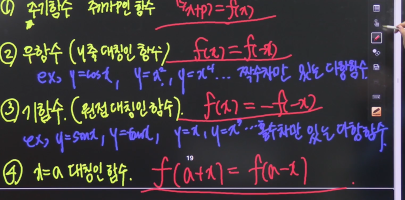 ① 주기함수 주기가 P인 함수 f(x+p) = f(x)
② 우함수 (y축 대칭인 함수) f(x) = f(-x)
ex) y=cosx, y=x², y=x⁴ ... 짝수차만 있는 다항함수
③ 기함수. (원점 대칭인 함수). f(x) = -f(-x)
ex) y=sinx, y=tanx, y=x, y=x³ ... 홀수차만 있는 다항함수.
④ x=a 대칭인 함수. f(a+x) = f(a-x)
19